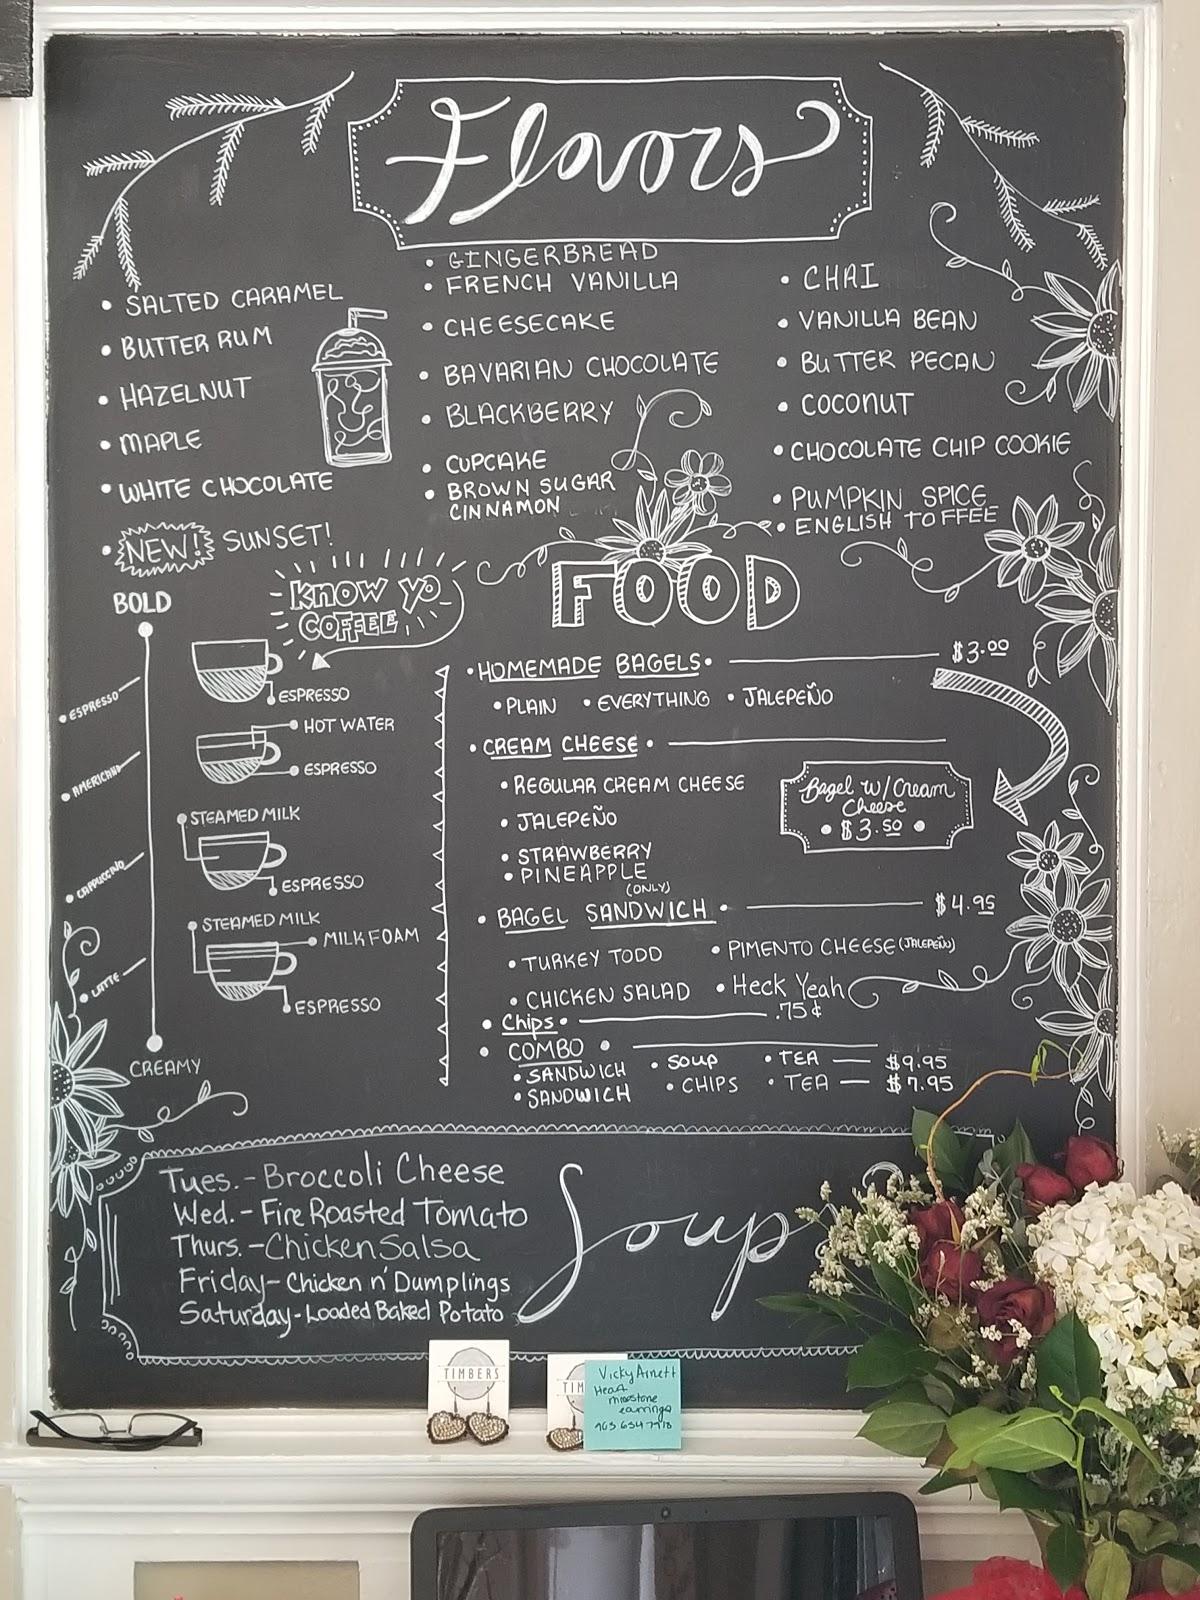 Flavors
• SALTED CARAMEL
• BUTTER RUM
• HAZELNUT
• MAPLE
• WHITE CHOCOLATE
• NEW! SUNSET!
• GINGERBREAD
• FRENCH VANILLA
• CHEESECAKE
• BAVARIAN CHOCOLATE
• BLACKBERRY
• CUPCAKE
• BROWN SUGAR
CINNAMON
• CHAI
• VANILLA BEAN
• BUTTER PECAN
• COCONUT
• CHOCOLATE CHIP COOKIE
• PUMPKIN SPICE
• ENGLISH TOFFEE
KNOW YO
COFFEE
BOLD
ESPRESSO
AMERICANO
CAPPUCCINO
LATTE
CREAMY
ESPRESSO
HOT WATER
ESPRESSO
STEAMED MILK
ESPRESSO
STEAMED MILK
MILK FOAM
ESPRESSO
FOOD
• HOMEMADE BAGELS • $3.00
• PLAIN • EVERYTHING • JALEPEÑO
• CREAM CHEESE •
• REGULAR CREAM CHEESE
• JALEPEÑO
• STRAWBERRY
• PINEAPPLE
Bagel w/Cream
Cheese
• $3.50 •
(ONLY)
• BAGEL SANDWICH • $4.95
• TURKEY TODD • PIMENTO CHEESE (JALEPEÑO)
• CHICKEN SALAD • Heck Yeah
• Chips • .75¢
• COMBO •
• SANDWICH • SOUP • TEA — $9.95
• SANDWICH • CHIPS • TEA — $7.95
Soup
Tues. - Broccoli Cheese
Wed. - Fire Roasted Tomato
Thurs. - Chicken Salsa
Friday - Chicken n' Dumplings
Saturday - Loaded Baked Potato
TIMBERS
TIM
Vicky Arnett
Heart
earrings